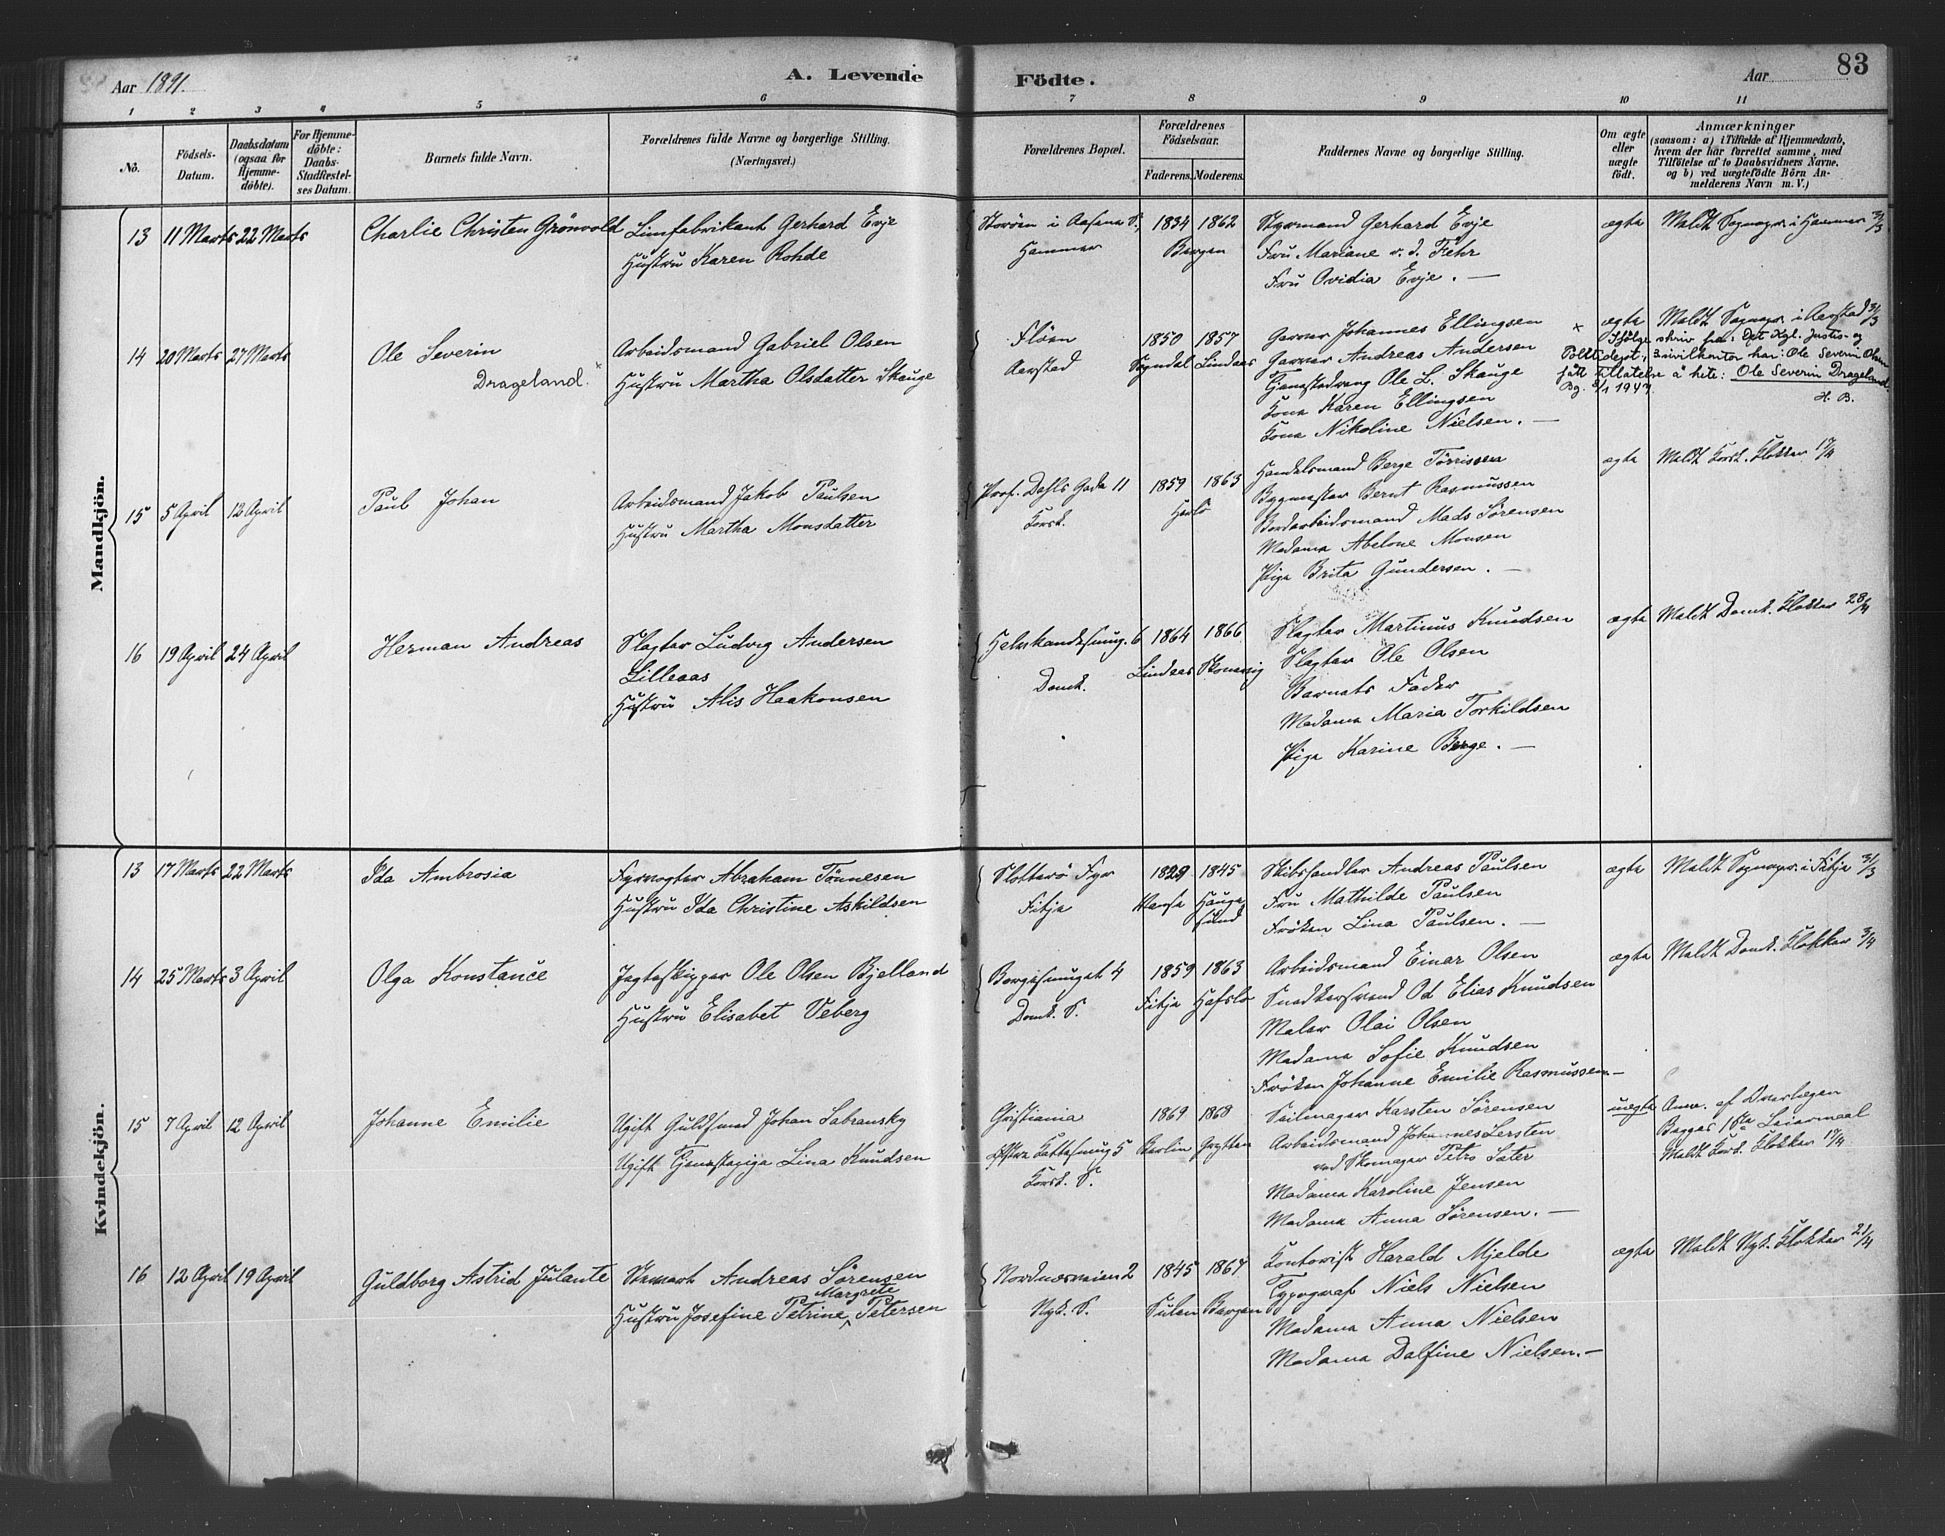 Aar 1891.
A. Levende
Födte.
Aar
83
1 2 3 4 5 6 7 8 9 10 11
No.
Födsels-Datum.
Daabsdatum (ogsaa for Hjemme-döbte).
For Hjemme-döbte: Daabs-Stadfæstel-ses Datum.
Barnets fulde Navn.
Forældrenes fulde Navne og borgerlige Stilling. (Næringsvei.)
Forældrenes Bopæl.
Forældrenes Födselsaar.
Faderens. Moderens.
Faddernes Navne og borgerlige Stilling.
Om ægte eller uægte födt.
Anmærkninger (saasom: a) i Tilfælde af Hjemmedaab, hvem der har forrettet samme, med Tilföielse af to Daabsvidners Navne, og b) ved uægtefödte Börn An-melderens Navn m. V.)
Mandkjön.
13 11 Marts 22 Marts Charlie Christen Grönvold
Limfabrikant Gerhard Evje
Hustru Karen Rohde
Storöen i Aasene S.
Hammer
1834 1862
Bergen
Styrmand Gerhard Evje
Fru Mariane v. d. Fehr
Fru Ovidia Evje. —
ægte
Meldt Sognepr. i Hammer 31/3
14 20 Marts 27 Marts Ole Severin
Drageland.
Arbeidsmand Gabriel Olsen
Hustru Martha Olsdatter Skauge
Flöen
Aarstad
1850 1857
Sogndal Lindaas
Garver Johannes Ellingsen
Garver Andreas Andersen
Tjenestedreng Ole L. Skauge
Kona Karen Ellingsen
Kona Nikoline Nielsen. —
ægte
Meldt Sognepr. i Aarstad 31/3
x Ifölge skriv fra: Det Kgl. Justis- og
Politidept; 3 sivilkontor har: Ole Severin Olsen
fått tillatelse å hete: Ole Severin Drageland
Bg. 8/1 1947.
H. B.
15 5 April 12 April Paul Johan
Arbeidsmand Jakob Paulsen
Hustru Martha Monsdatter
Prof. Dahls Gade 11
Korsk.
1859 1863
Herlö
Handelsmand Berge Törrissen
Bygmester Bernt Rasmussen
Bordarbeidsmand Mads Sörensen
Madama Abelone Monsen
Pige Brita Gundersen. —
ægte
Meldt Korsk. Klokker 17/4
16 19 April 24 April Herman Andreas
Slagter Ludvig Andersen
Lilleaas
Hustru Alis Haakonsen
6
Domk.
1864 1866
Lindaas
Slagter Martinus Knudsen
Slagter Ole Olsen
Barnets Fader
Madama Maria Torkildsen
Pige Karine Berge. —
ægte
Meldt Domk. Klokker 28/4
Kvindekjön.
13 17 Marts 22 Marts Ida Ambrosia
Fyrvogter Abraham Tönnesen
Hustru Ida Christine Askildsen
Slotterö Fyr
Fitje
1829 1845
Hauge-
sund
Skibshandler Andreas Paulsen
Fru Mathilde Paulsen
Fröken Lina Paulsen. —
ægte
Meldt Sognepr. i Fitje 31/3
14 25 Marts 3 April Olga Konstance
Jagteskipper Ole Olsen Bjelland
Hustru Elisabet Veberg
4
Domk. S.
1859 1863
Fitje Hafslo
Arbeidsmand Einar Olsen
Snedkersvend Od Elias Knudsen
Maler Olai Olsen
Madama Sofie Knudsen
Fröken Johanne Emilie Rasmussen —
ægte
Meldt Domk. Klokker 3/4
15 7 April 12 April Johanne Emilie
Ugift Guldsmed Johan Sabransky
Ugift Tjenestepige Lina Knudsen
Christiania
5
Korsk. S.
1869 1868
Berlin Grytten
Seilmager Karsten Sörensen
Arbeidsmand Johannes Lersten
ved Skomager Petro Sater
Madama Karoline Jensen
Madama Anna Sörensen. —
uægte
Anm. af
1ste Leiermaal
Meldt Korsk. Klokker 17/4
16 12 April 19 April Guldborg Astrid Julante
Andreas Sörensen
Margrete
Hustru Josefine Petrine Petersen
Nordnæsveien 2
Nyk. S.
1845 1867
Sulen Bergen
Kontorist Harald Mjelde
Typograf Niels Nielsen
Madama Anna Nielsen
Madama Dalfine Nielsen. —
ægte
Meldt Nyk. Klokker 21/4